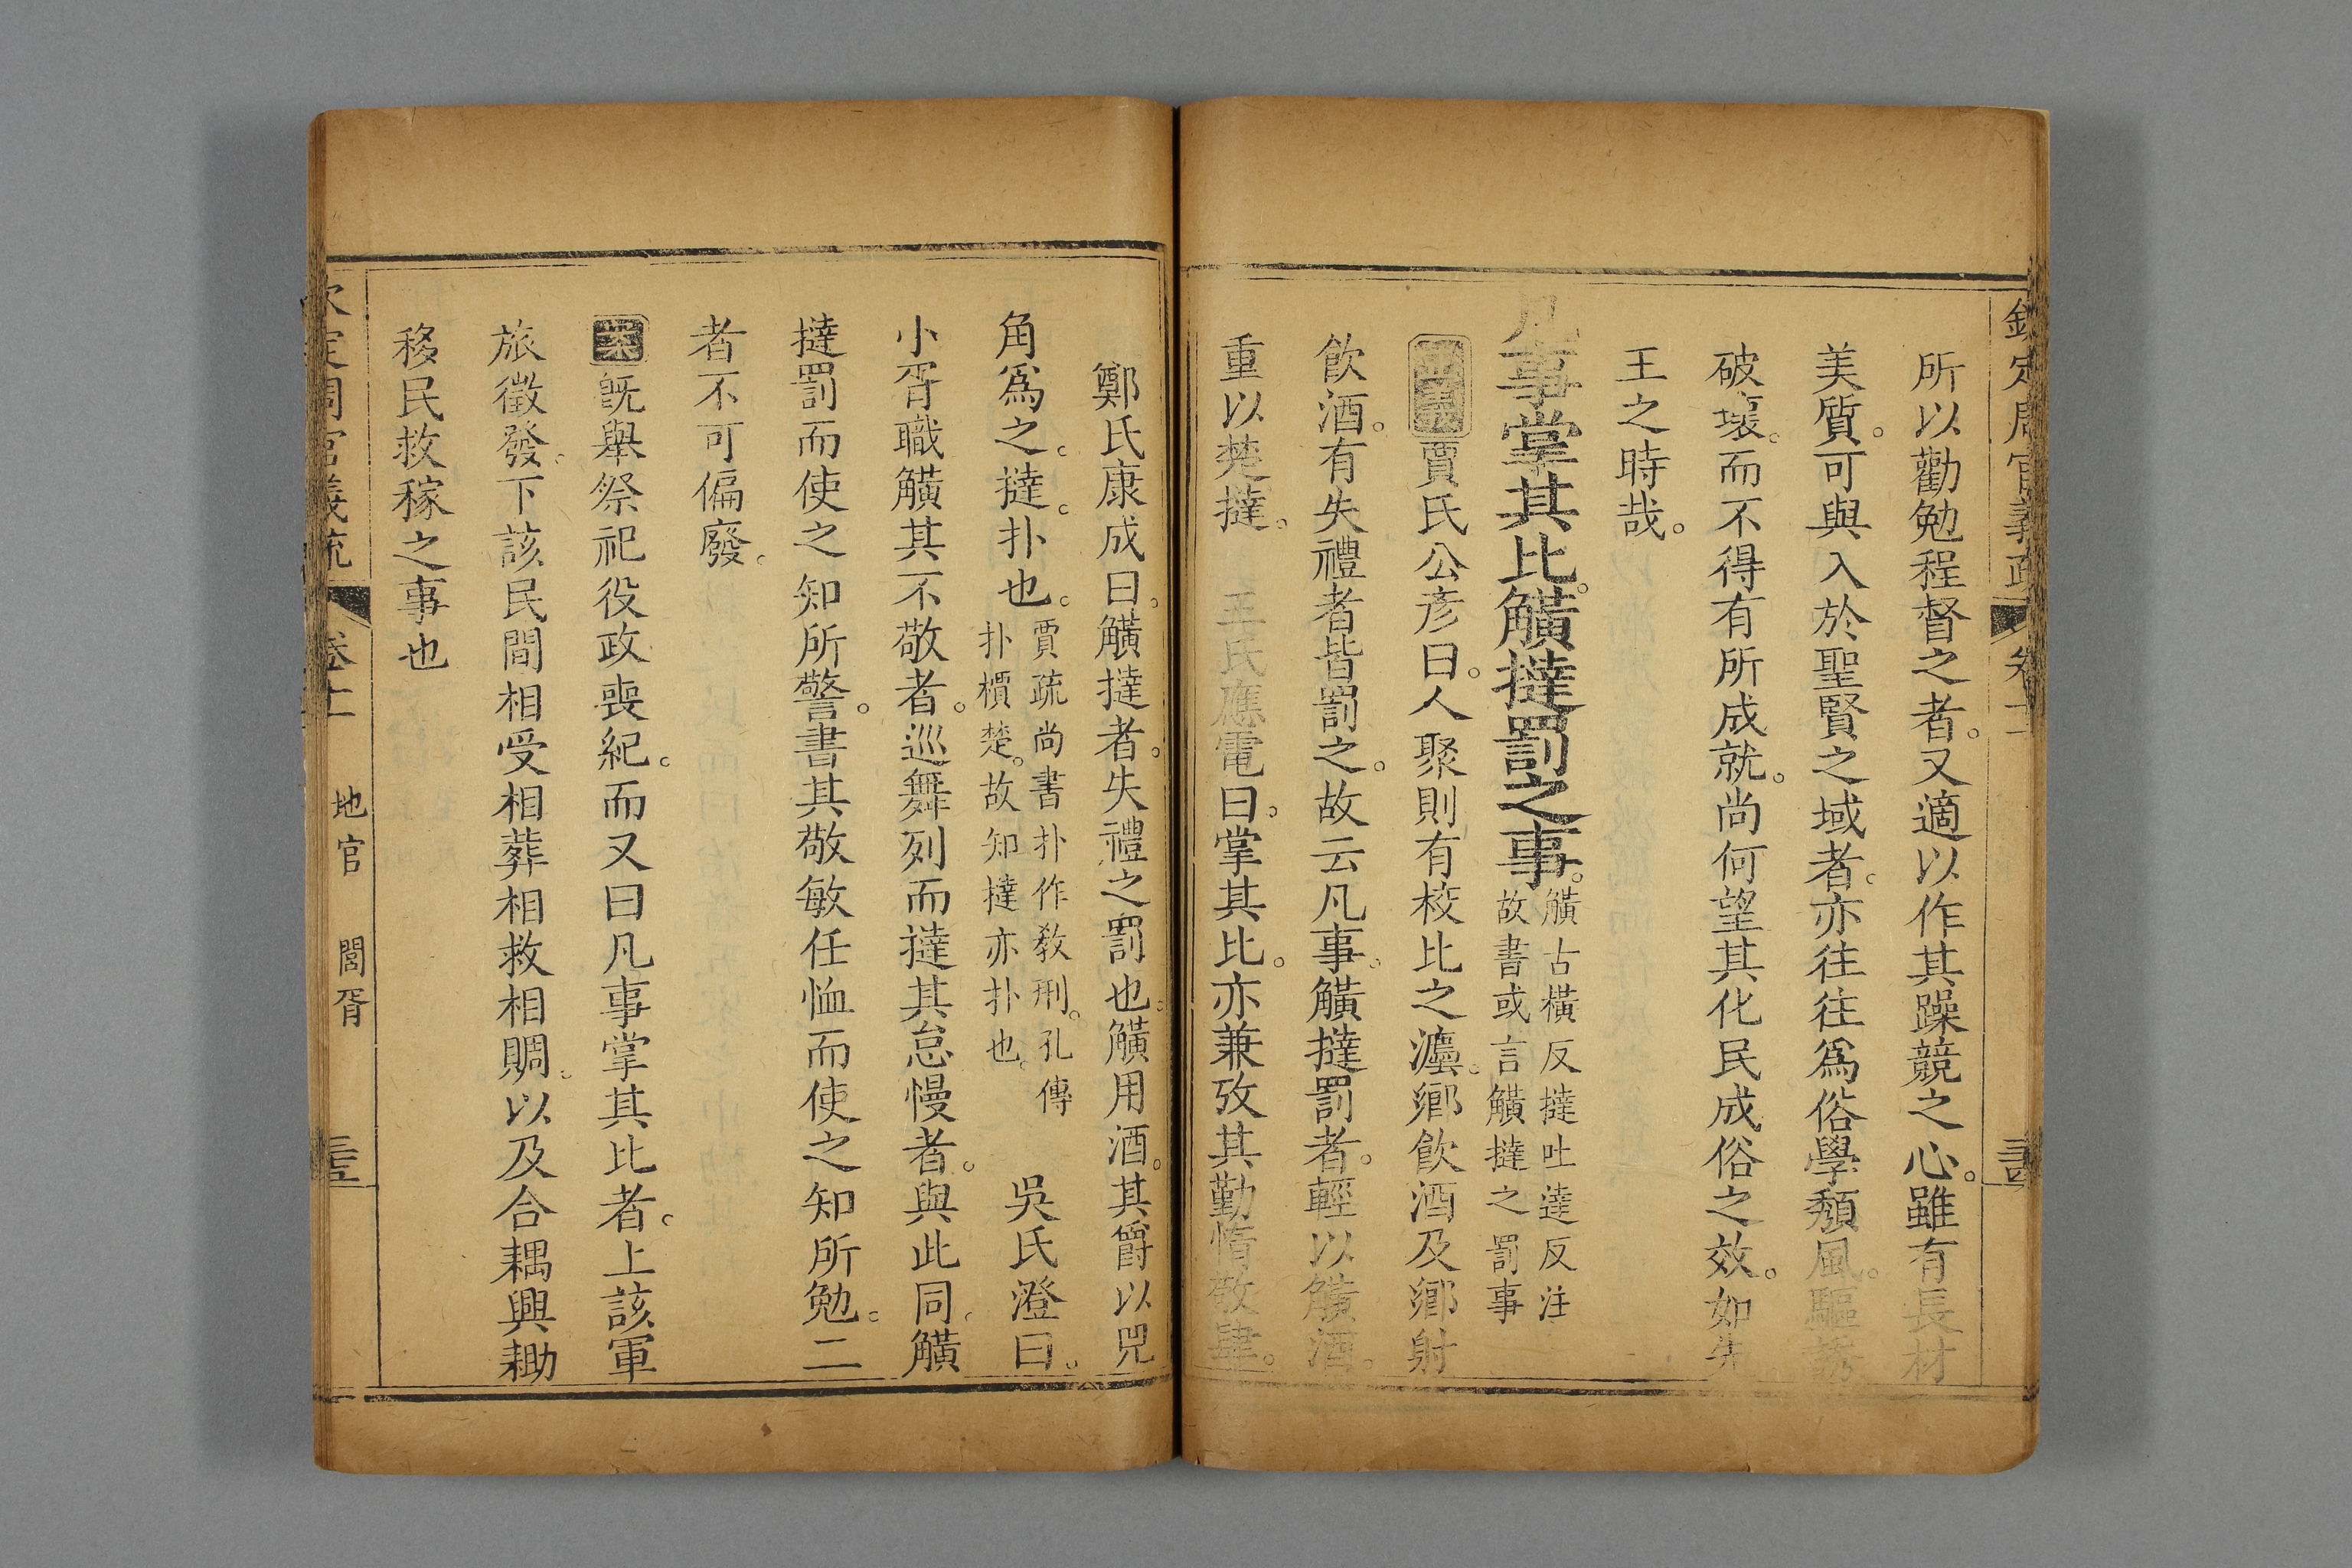 欽定周官義疏 卷十一 三
所以勸勉程督之者。又適以作其躁競之心。雖有長材
美質。可與入於聖賢之域者。亦往往爲俗學頽風。驅誘
破壞。而不得有所成就。尚何望其化民成俗之效。如先
王之時哉。
凡事掌其比。觵撻罰之事。
觵古橫反撻吐達反注
故書或言觵撻之罰事
正義賈氏公彦曰。人聚則有校比之灋。鄉飲酒及鄉射
飲酒。有失禮者皆罰之。故云凡事。觵撻罰者。輕以觵酒。
重以楚撻。 王氏應電曰。掌其比。亦兼攷其勤惰敬肆。
鄭氏康成曰。觵撻者。失禮之罰也。觵用酒。其爵以兕
角爲之。撻。扑也。
賈疏尚書扑作敎刑。孔傳
扑檟楚。故知撻亦扑也。
吳氏澄曰。
小胥職觵其不敬者。巡舞列而撻其怠慢者。與此同。觵
撻罰而使之知所警。書其敬敏任恤而使之知所勉。二
者不可偏廢。
案旣舉祭祀役政喪紀。而又曰凡事掌其比者。上該軍
旅徵發。下該民間相受相葬相救相賙。以及合耦興耡
移民救稼之事也
欽定周官義疏 卷十一 地官 閭胥 三